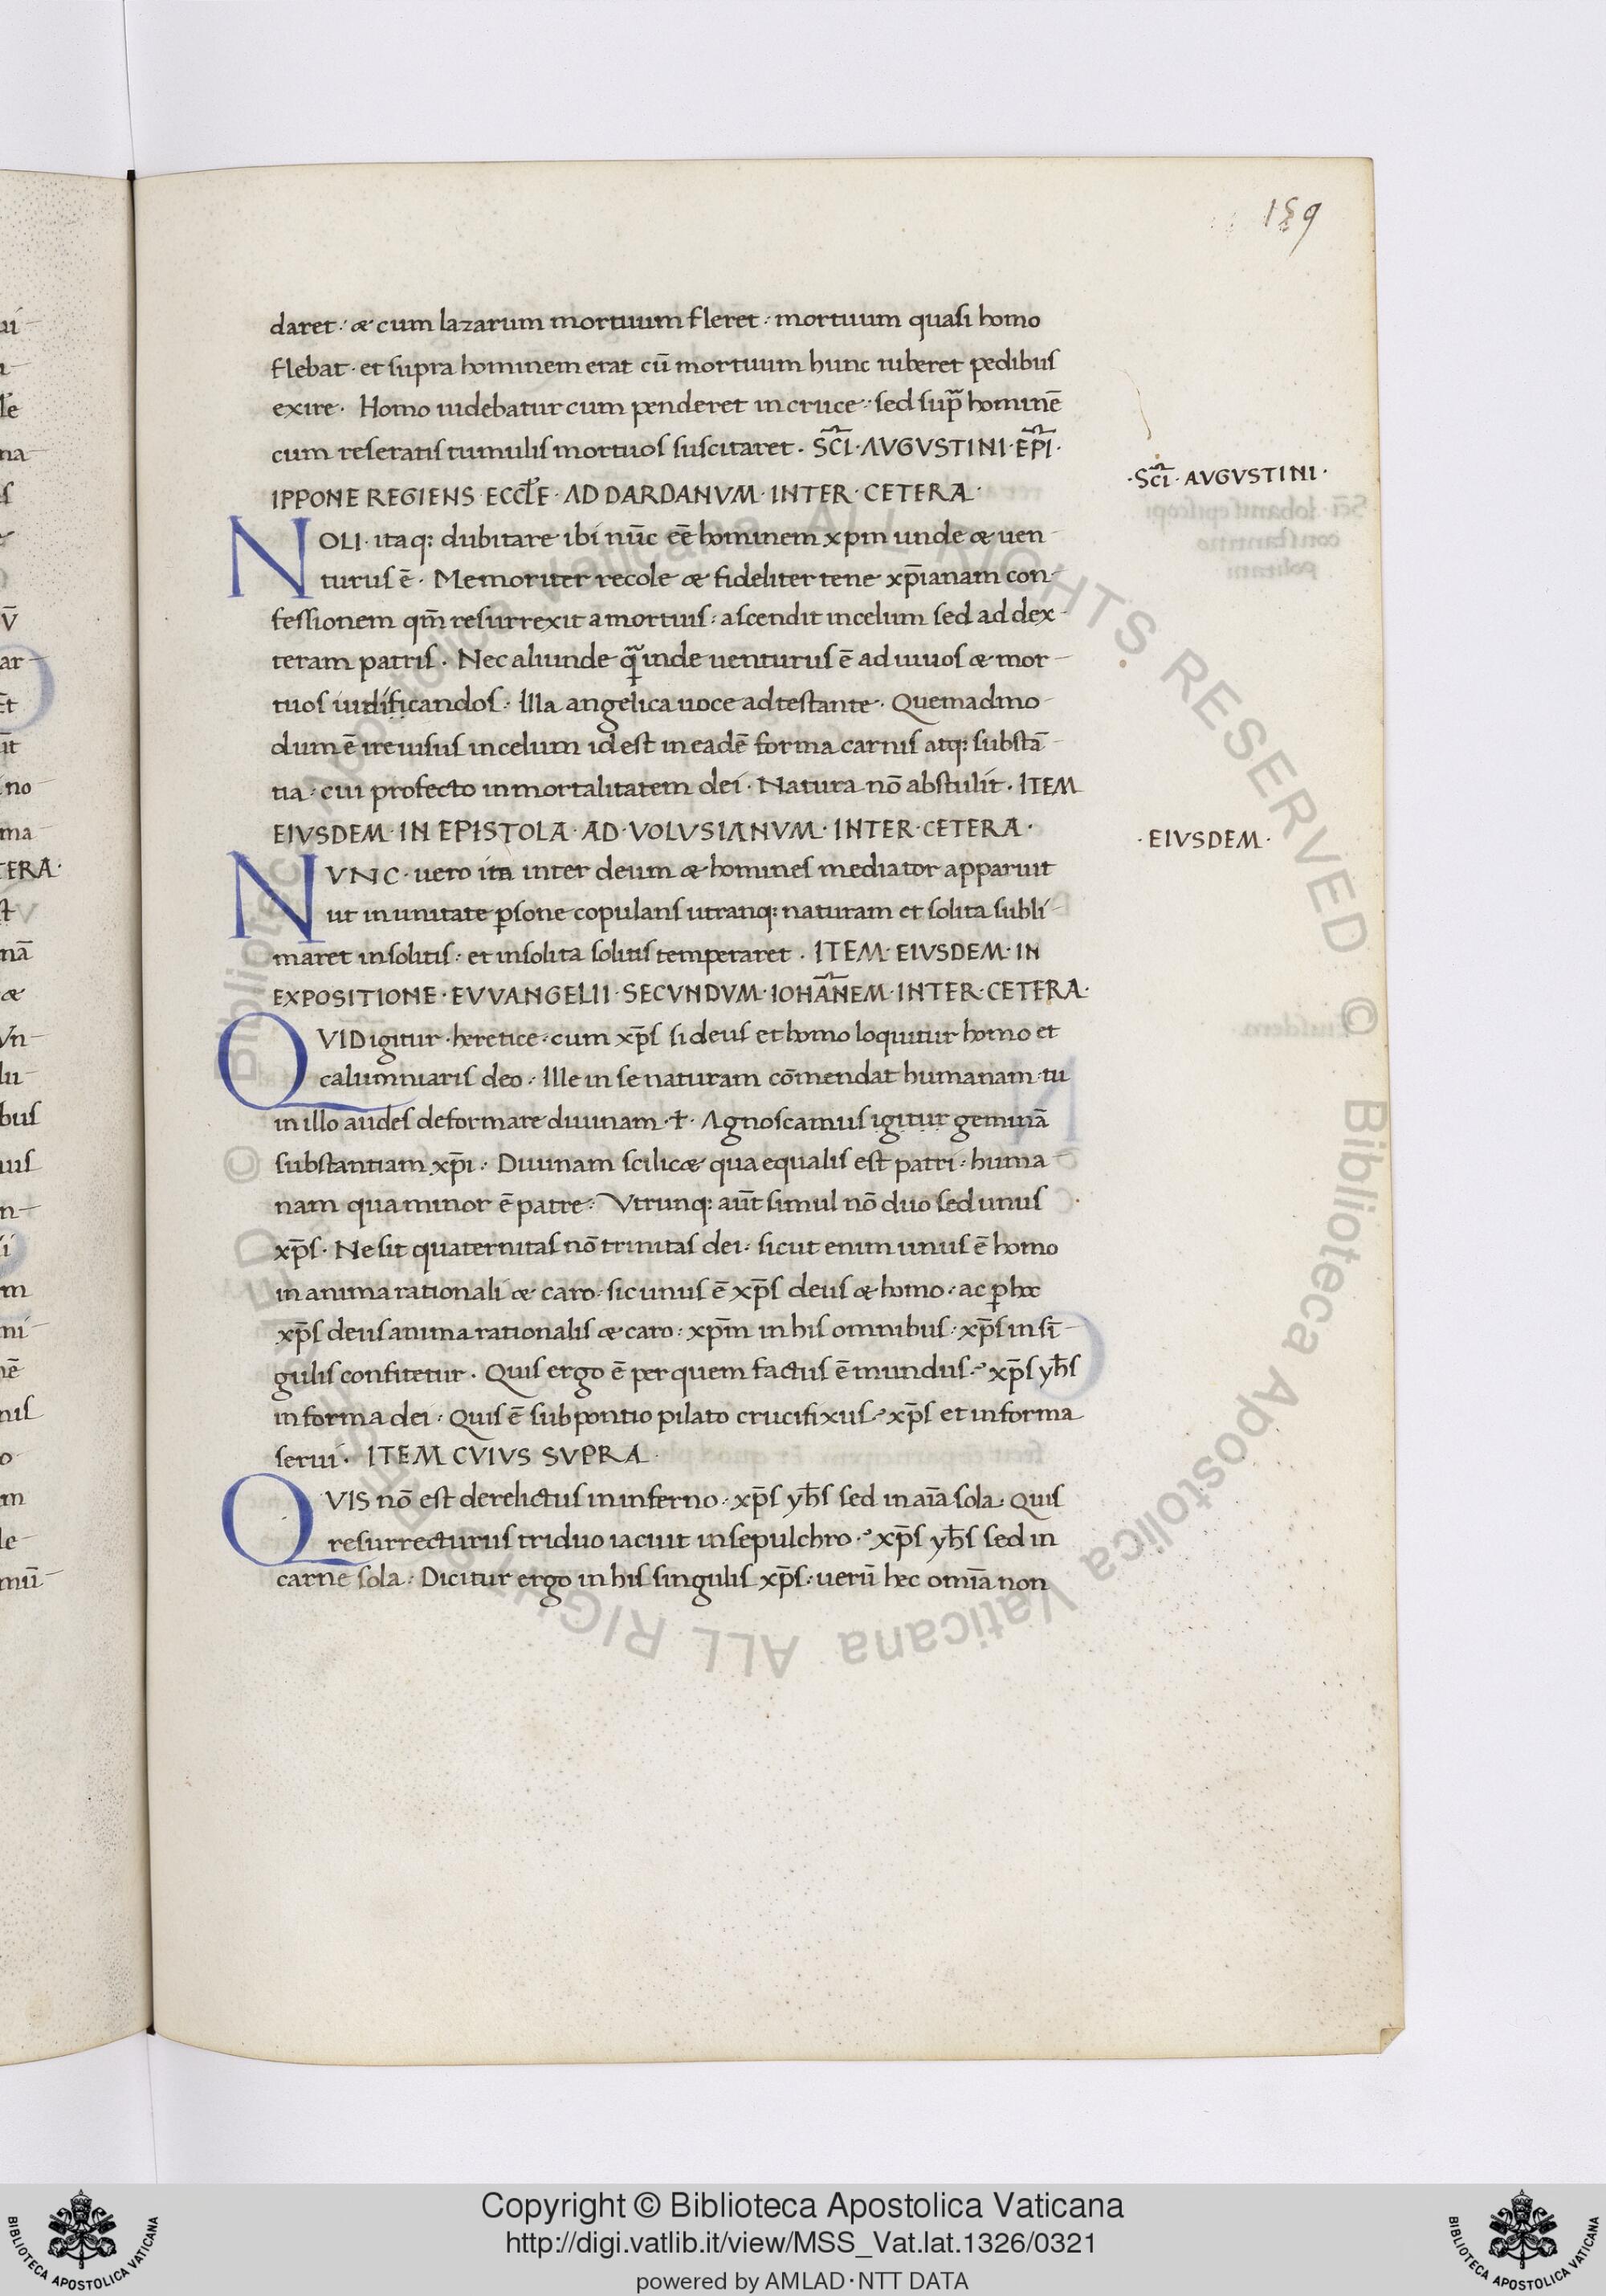 159
daret · & cum lazarum mortuum fleret · mortuum quasi homo
flebat · et supra hominem erat cū mortuum hunc iuberet pedibus
exire · Homo uidebatur cum penderet in cruce · sed sup̄ hominē
cum reseratis tumulis mortuos suscitaret · SC̄I · AVGVSTINI · EP̄I ·
IPPONE REGIENS · ECCL̄E · AD DARDANVM · INTER · CETERA ·
·SC̄I · AVGVSTINI ·
NOLI · itaq: dubitare ibi nūc eē hominem xpm unde & uen-
turus ē · Memoriter recole & fideliter tene xp̄ianam con-
fessionem qm̄ resurrexit a mortuis : ascendit in celum sed ad dex-
teram patris · Nec aliunde q̄ inde uenturus ē ad uiuos & mor-
tuos iudificandos · Illa angelica uoce adtestante · Quemadmo-
dum ē ire uisus in celum id est in eadē forma carnis atq: substā-
tia · cui profecto inmortalitatem dei · Natura nō abstulit · ITEM
EIVSDEM · IN EPISTOLA · AD · VOLVSIANVM · INTER · CETERA ·
· EIVSDEM ·
NVNC · uero ita inter deum & homines mediator apparuit
ut in unitate ꝑsone copulans utranq: naturam et solita subli-
maret insolitis : et insolita solitis temperaret · ITEM · EIVSDEM · IN
EXPOSITIONE · EVVANGELII · SECVNDVM · IOHĀNEM · INTER · CETERA ·
QVID igitur · heretice · cum xp̄s si deus et homo loquitur homo et
calumniaris deo · Ille in se naturam cōmendat humanam · tu
in illo audes deformare diuinam · ł · Agnoscamus igitur geminā
substantiam xp̄i · Diuinam scilic& qua equalis est patri : huma-
nam qua minor ē patre · Vtrunq: aūt simul nō duo sed unus
xp̄s · Ne sit quaternitas nō trinitas dei · sicut enim unus ē homo
in anima rationali & caro · sic unus ē xp̄s deus & homo · ac ꝑ hoc
xp̄s deus anima rationalis & caro : xp̄m in his omnibus : xp̄s in sī-
gulis confitetur · Quis ergo ē per quem factus ē mundus · xp̄s yh̄s
in forma dei · Quis ē sub pontio pilato crucifixus · xp̄s et in forma
serui · ITEM CVIVS SVPRA ·
QVIS nō est derelictus in inferno · xp̄s yh̄s sed in aīa sola · Quis
resurrecturus triduo iacuit in sepulchro · xp̄s yh̄s sed in
carne sola · Dicitur ergo in his singulis xp̄s · uerū hec omīa non
© Biblioteca Apostolica Vaticana ALL RIGHTS RESERVED © Biblioteca Apostolica Vaticana ALL RIGHTS RESERVED
Copyright © Biblioteca Apostolica Vaticana
http://digi.vatlib.it/view/MSS_Vat.lat.1326/0321
powered by AMLAD·NTT DATA
BIBLIOTECA APOSTOLICA VATICANA
BIBLIOTECA APOSTOLICA VATICANA